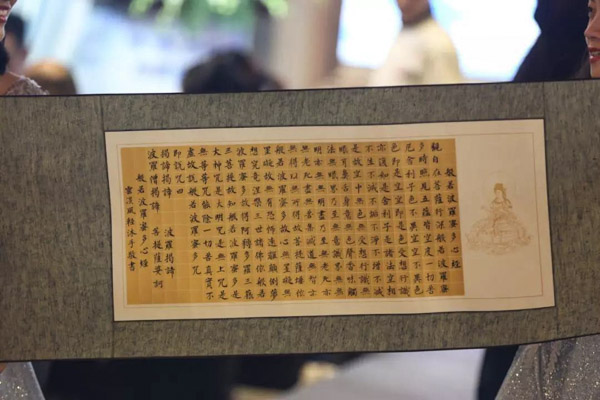 般若波羅蜜多心經
觀自在菩薩行深般若波羅蜜
多時照見五蘊皆空度一切苦
厄舍利子色不異空空不異色
色即是空空即是色受想行識
亦復如是舍利子是諸法空相
不生不滅不垢不淨不增不減
是故空中無色無受想行識無
眼耳鼻舌身意無色聲香味觸
法無眼界乃至無意識界無無
明亦無無明盡乃至無老死亦
無老死盡無苦集滅道無智亦
無得以無所得故菩提薩埵依
般若波羅蜜多故心無罣礙無
罣礙故無有恐怖遠離顛倒夢
想究竟涅槃三世諸佛依般若
波羅蜜多故得阿耨多羅三藐
三菩提故知般若波羅蜜多是
大神咒是大明咒是無上咒是
無等等咒能除一切苦真實不
虛故說般若波羅蜜多咒
即說咒曰
揭諦揭諦 波羅揭諦
波羅僧揭諦 菩提薩婆訶
般若波羅蜜多心經
沐手敬書